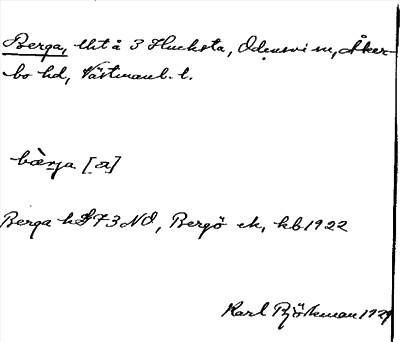 Berga, lht å 3 Hucksta, Odensvi sn, Åker-
bo hd, Västmanl. l.
bæ̀rja [a]
Berga h 73 NO, Bergö ek, hb 1922
Karl Björkman 1929